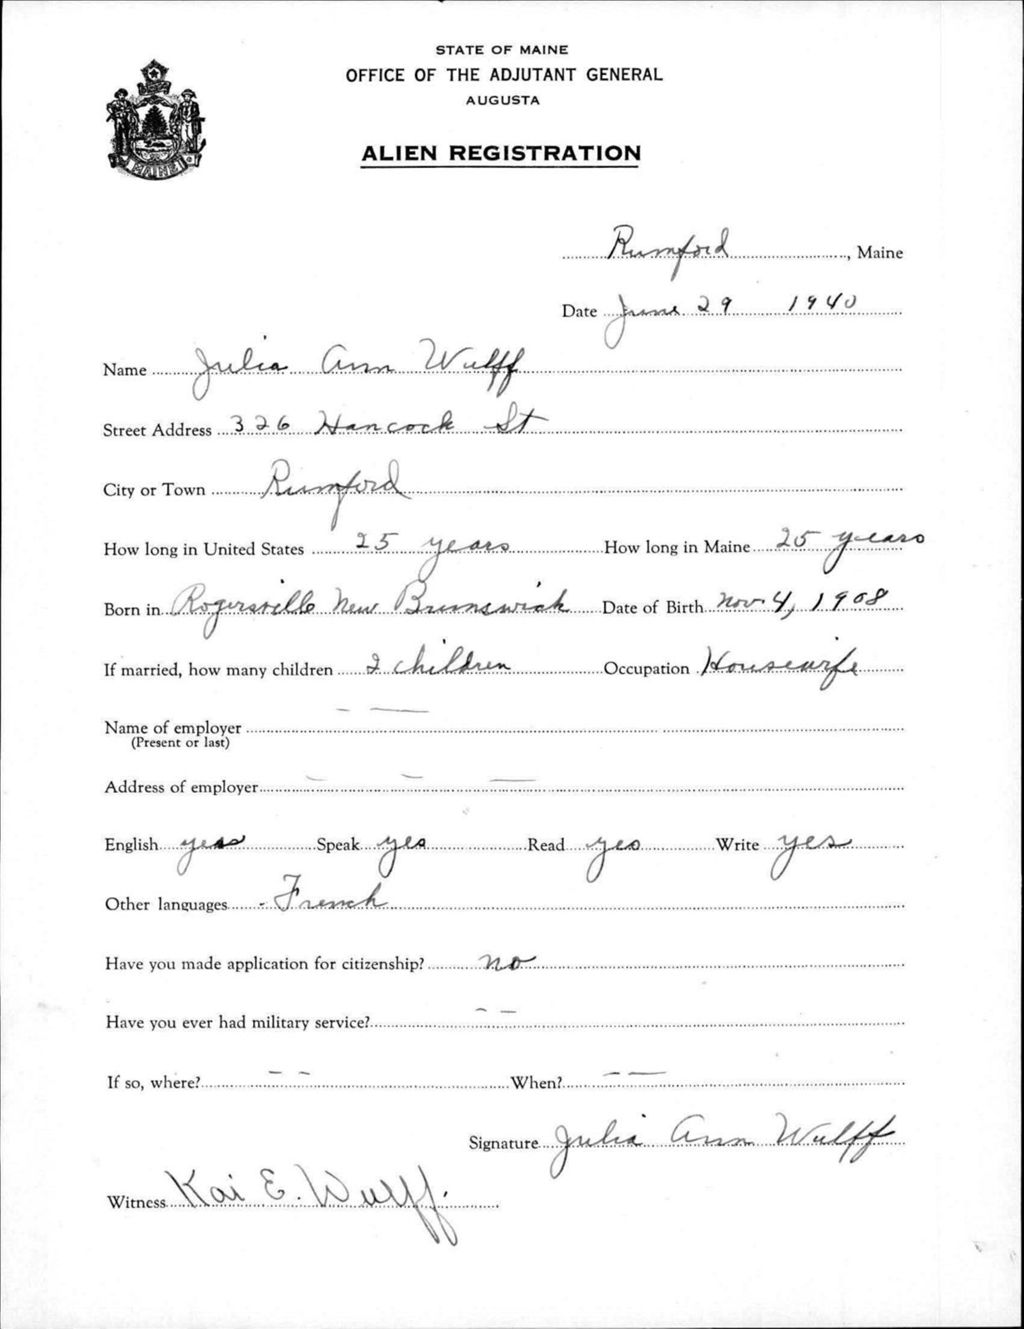 STATE OF MAINE
OFFICE OF THE ADJUTANT GENERAL
AUGUSTA
ALIEN REGISTRATION
MAINE
Rumford, Maine
Date June 29 1940
Name Julia Ann Wulff
Street Address 326 Hancock St
City or Town Rumford
How long in United States 25 years How long in Maine 25 years
Born in Rogersville New Brunswick Date of Birth Nov. 4, 1908
If married, how many children 2 children Occupation Housewife
Name of employer — —
(Present or last)
Address of employer — — —
English yes Speak yes Read yes Write yes
Other languages - French
Have you made application for citizenship? no
Have you ever had military service? — —
If so, where? — — When? — —
Signature Julia Ann Wulff
Witness Kai E. Wulff.